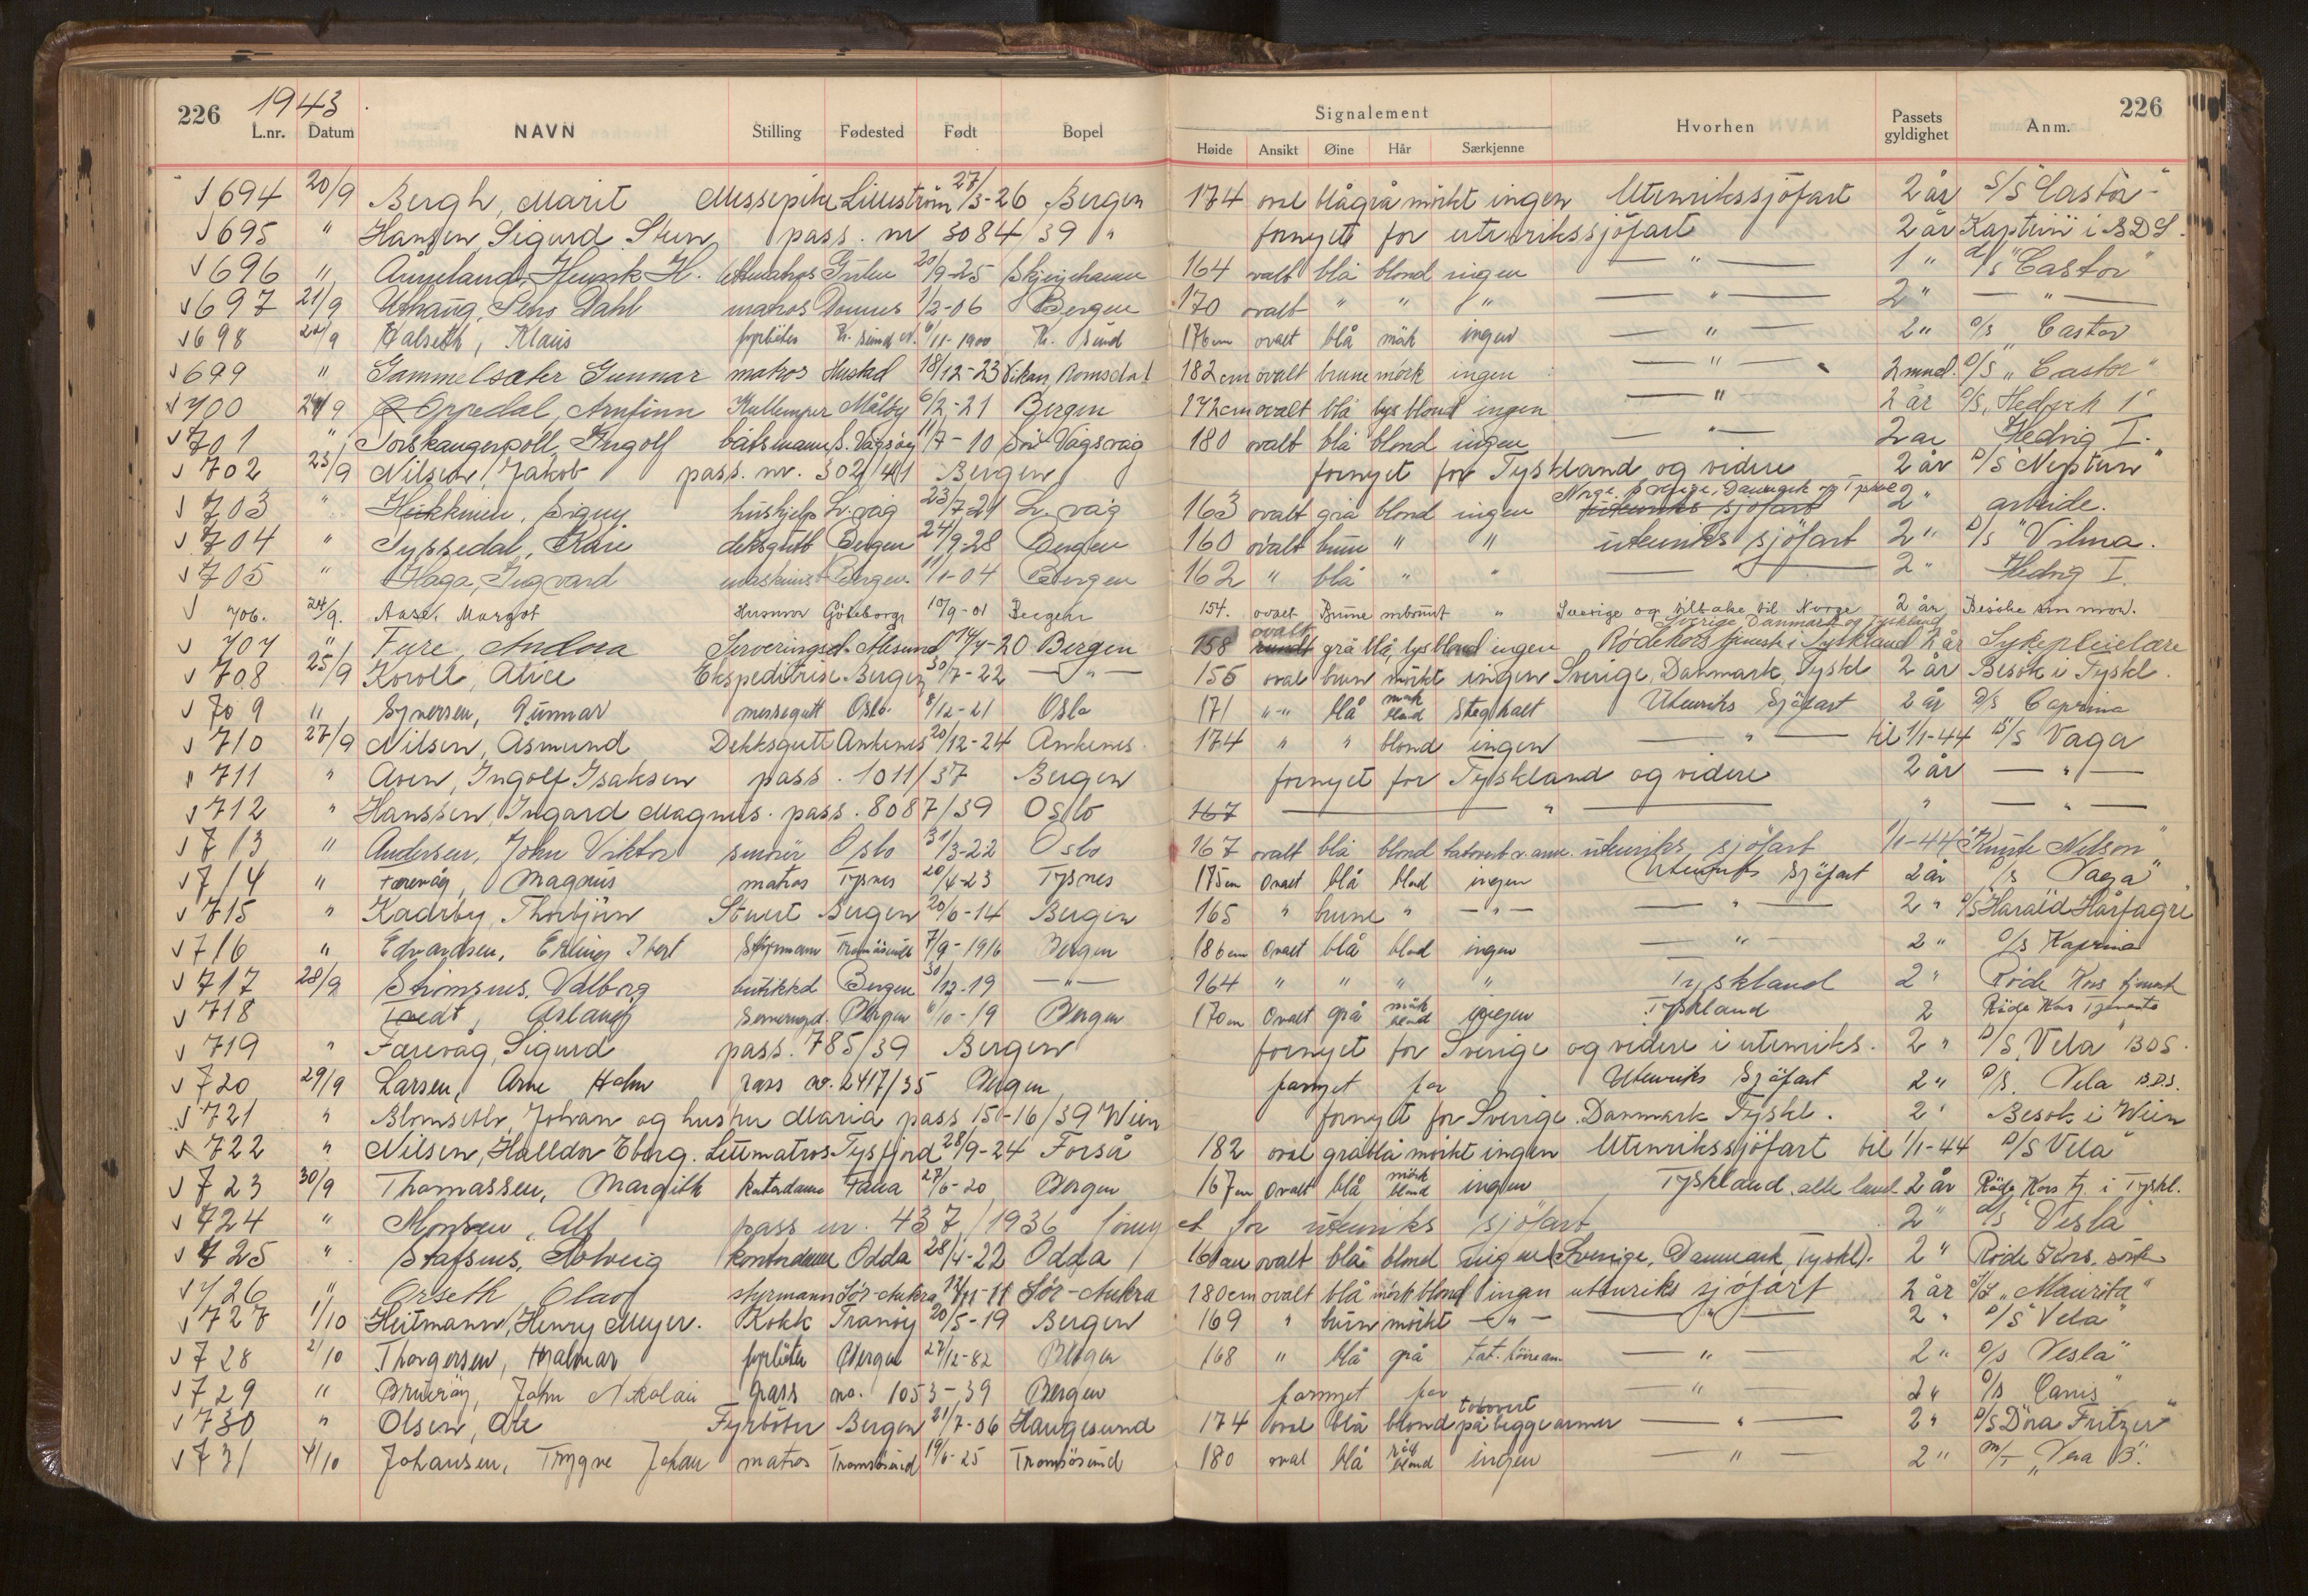 226 1943 Signalement 226
L.nr. Datum NAVN Stilling Fødested Født Bopel Høide Ansikt Øine Hår Særkjenne Hvorhen Passets gyldighet Anm.
694 20/9 Bergh, Marit Messepike Lilleström 27/3-26 Bergen 174 oval blågrå mörkt ingen Utenrikssjöfart 2 år S/S "Castor"
695 " Hansen, Sigurd Sten pass. nr 3084/39 " fornyet for utenrikssjöfart 2 år i BDS.
696 " Henrik H. Gulen 20/9-25 164 ovalt blå blond ingen — " — 1 " d/s "Castor"
697 21/9 Dahl matros Dönnes 1/2-06 Bergen 170 ovalt " " " — " — 2 " — " —
698 22/9 Halseth, Klaus fyrböter Kr. sund N. 6/11-1900 Kr. sund 176 cm ovalt blå mörk ingen — " — 2 " D/s "Castor
699 " Gammelsæter Gunnar matros Hustad 18/12-23 Romsdal 182 cm ovalt brune mörk ingen — " — 2 mnd. D/S "Castor"
700 24/9 Oppedal, Arnfinn Kullemper Målöy 6/2-21 Bergen 172 cm ovalt blå lys blond ingen — " 2 år D/S,
701 " Torskangerpoll, Ingolf båtsmann S. Vågsöy 11/7-10 Vågsvåg 180 ovalt blå blond ingen — " — 2 år Hedvig I.
702 23/9 Nilsen, Jakob pass. nr. 302/41 Bergen fornyet for Tyskland og videre 2 år D/S "Neptun"
703 " Heikkinen, Signy hushjelp L. våg 23/7-21 L. våg 163 ovalt grå blond ingen Norge, Sverige, Danmark og 2 " arbeide.
704 " Tyssedal, Kåre dekksgutt Bergen 24/9-28 Bergen 160 ovalt brun " " utenriks sjöfart 2 " D/s "Vilma.
705 " Haga, Ingvard maskinist Bergen 11/1-04 Bergen 162 " blå " " — " — 2 " Hedvig I.
706. 24/9. Aase, Margot Husmor Göteborg 10/9-01 Bergen 154. ovalt Brune " Sverige og tilbake til Norge 2 år Besöke sin mor.
707 " Fure, Andrea Serveringsd. Ålesund 14/4-20 Bergen 158 ovalt rundt grå blå lys blond ingen Rödekorstjeneste i Tyskland Sverige Danmark og Tyskland 2 år Sykepleielære
708 25/9 Koroll, Alice Ekspeditrise Bergen 30/7-22 — " — 156 oval brun mörkt ingen Sverige, Danmark, Tyskl 2 år Besök i Tyskl.
709 " Syversen, Gunnar messegutt Oslo. 8/12-21 Oslo 171 " - " blå mörk blond Utenriks Sjöfart 2 år D/s Caprina
710 27/9 Nilsen, Åsmund Dekksgutt Ankenes 20/12-24 Ankenes. 174 " " blond ingen — " — til 1/1-44 D/S Vaga
711 " Aven, Ingolf Isaksen pass. 1011/37 Bergen fornyet for Tyskland og videre 2 år — " —
712 " Hanssen, Ingard Magnus. pass. 8087/39 Oslo 167 — " — " — " —
713 " Andersen, John Viktor smörer Oslo 31/3-22 Oslo 167 ovalt blå blond tatovert v. arm. utenriks sjöfart 1/1-44 "Knute Nelson"
714 " Færevåg, Magnus matros Tysnes 20/4-23 Tysnes 175 cm ovalt blå blond ingen Utenriks Sjöfart 2 år D/s "Vaga"
715 " Kaarby, Thorbjörn Stuert Bergen 20/6-14 Bergen 165 " brune " — " — — " — 2 " D/S "Harald Hårfagre"
716 " Edvardsen, Erling Styrmann Tromösund 7/9-1916 Bergen 186 cm ovalt blå blond ingen — " — 2 " D/s Kaprina
717 28/9 Valborg butikkd Bergen 30/12-19 — " — 164 " " " " Tyskland 2 " Röde Kors tjeneste
718 Tvedt, Aslaug Serveringsd. Bergen 6/10-19 Bergen 170 cm ovalt grå mörk blond ingen Tyskland 2 Röde Kors Tjeneste
719 " Færevåg, Sigurd pass. 785/39 Bergen fornyet for Sverige og videre i utenriks. 2 " D/S "Vela" BDS.
720 29/9 Larsen, Arne Holm pass nr. 2417/35 Bergen fornyet for Utenriks Sjöfart 2 " D/s. Vela B.D.S.
721 " Blomseth, Johan og hustru Maria pass 150-16/39 Wien fornyet for Sverige. Danmark Tyskl. 2 " Besök i Wien
722 " Nilsen, Halldor Eberg. Lettmatros Tysfjord 28/9-24 Forså 182 oval gråblå mörkt ingen Utenrikssjöfart til 1/1-44 D/S Vela"
723 30/9 Thomassen, Margith kontordame Fana 27/6-20 Bergen 167 cm ovalt blå mörk blond ingen Tyskland, alle land 2 år Röde Kors tj. i Tyskl.
724 " Monsen, Alf pass nr. 437/1936 fornyet for utenriks sjöfart 2 " d/s "Vesla"
725 " Stafsnes, Solveig kontordame Odda 28/4-22 Odda 161 cm ovalt blå blond ingen (Sverige, Danmark, Tyskl). 2 " Röde Kors.
726 " Orseth, Olav styrmann Sör-Aukra 12/11-11 Sör-Aukra 180 cm ovalt blå mörk blond ingen utenriks sjöfart 2 år "Maurita"
727 1/10 Heitmann, Henry Meyer. Kokk Tranöy 20/5-19 Bergen 169 " brun mörkt — " — — " — 2 " D/S "Vela"
728 2/10 Thorgersen, Hjalmar fyrböter Bergen 27/12-82 Bergen 168 " blå grå tat. höire arm. — " — 2 " D/s Vesla"
729 " Brueröy, John Nikolai pass no. 1053-39 Bergen fornyet for — " — 2 " D/s "Canis"
730 " Olsen, Ole Fyrböter Bergen 21/7-06 Haugesund 174 oval blå blond tatovert på begge armer — " — 2 " D/S "Dora Fritzen"
731 4/10 Johansen, Trygve Johan matros Tromsösund 19/6-25 Tromsösund 180 oval blå blond ingen — " — 2 " m/T "Vera B".